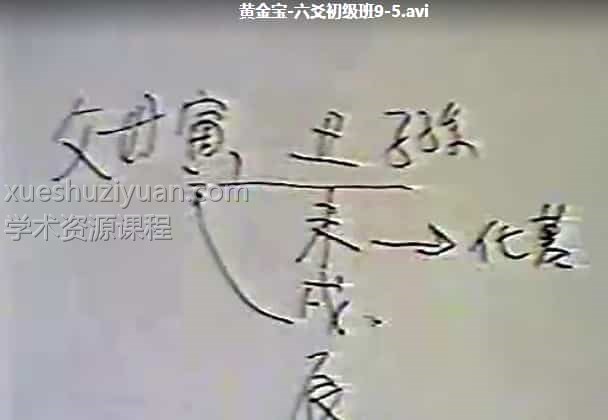 黄金宝-六爻初级班9-5.avi
父母寅 丑 子孙
xueshuziyuan.com
未→化墓
学术资源课程
戌、
辰